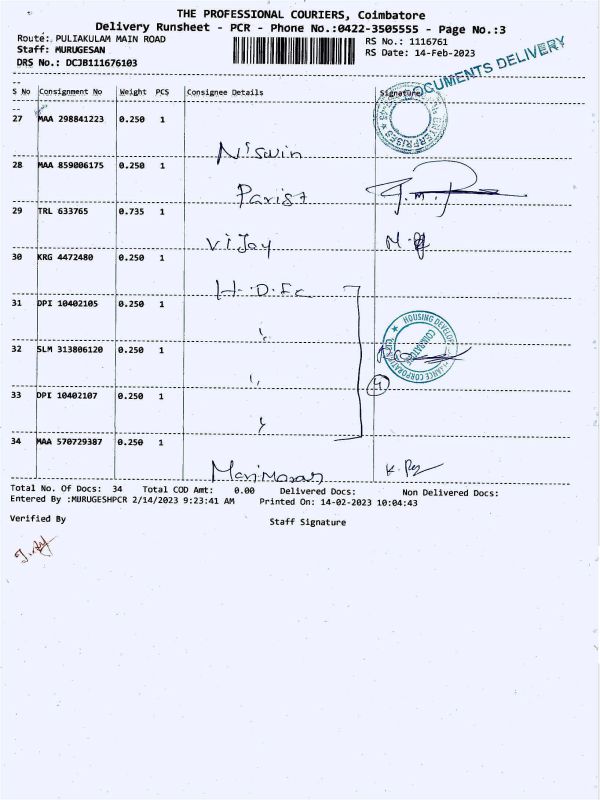 THE PROFESSIONAL COURIERS, Coimbatore
Delivery Runsheet - PCR - Phone No.:0422-3505555 - Page No.:3
Route: PULIAKULAM MAIN ROAD
Staff: MURUGESAN
DRS No.: DCJB111676103
RS No.: 1116761
RS Date: 14-Feb-2023
DOCUMENTS DELIVERY
S No Consignment No Weight PCS Consignee Details Signature
27 MAA 298841223 0.250 1
ENTERPRISES
Niswin
28 MAA 859006175 0.250 1
29 TRL 633765 0.735 1
Vijay
30 KRG 4472480 0.250 1
H.D.F.C
31 DPI 10402105 0.250 1
HOUSING DEVELOP
32 SLM 313806120 0.250 1
COIMBATORE
CORPORATION
33 DPI 10402107 0.250 1
4
34 MAA 570729387 0.250 1
Total No. Of Docs: 34 Total COD Amt: 0.00 Delivered Docs: Non Delivered Docs:
Entered By :MURUGESHPCR 2/14/2023 9:23:41 AM Printed On: 14-02-2023 10:04:43
Verified By Staff Signature